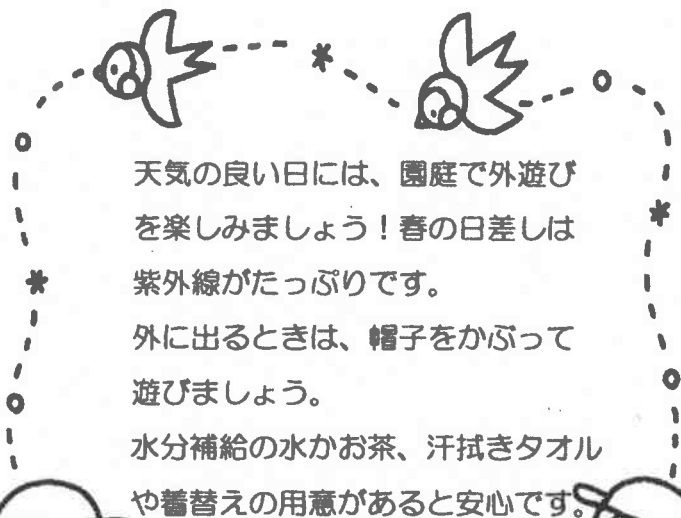 天気の良い日には、園庭で外遊び
を楽しみましょう！春の日差しは
紫外線がたっぷりです。
外に出るときは、帽子をかぶって
遊びましょう。
水分補給の水かお茶、汗拭きタオル
や着替えの用意があると安心です。